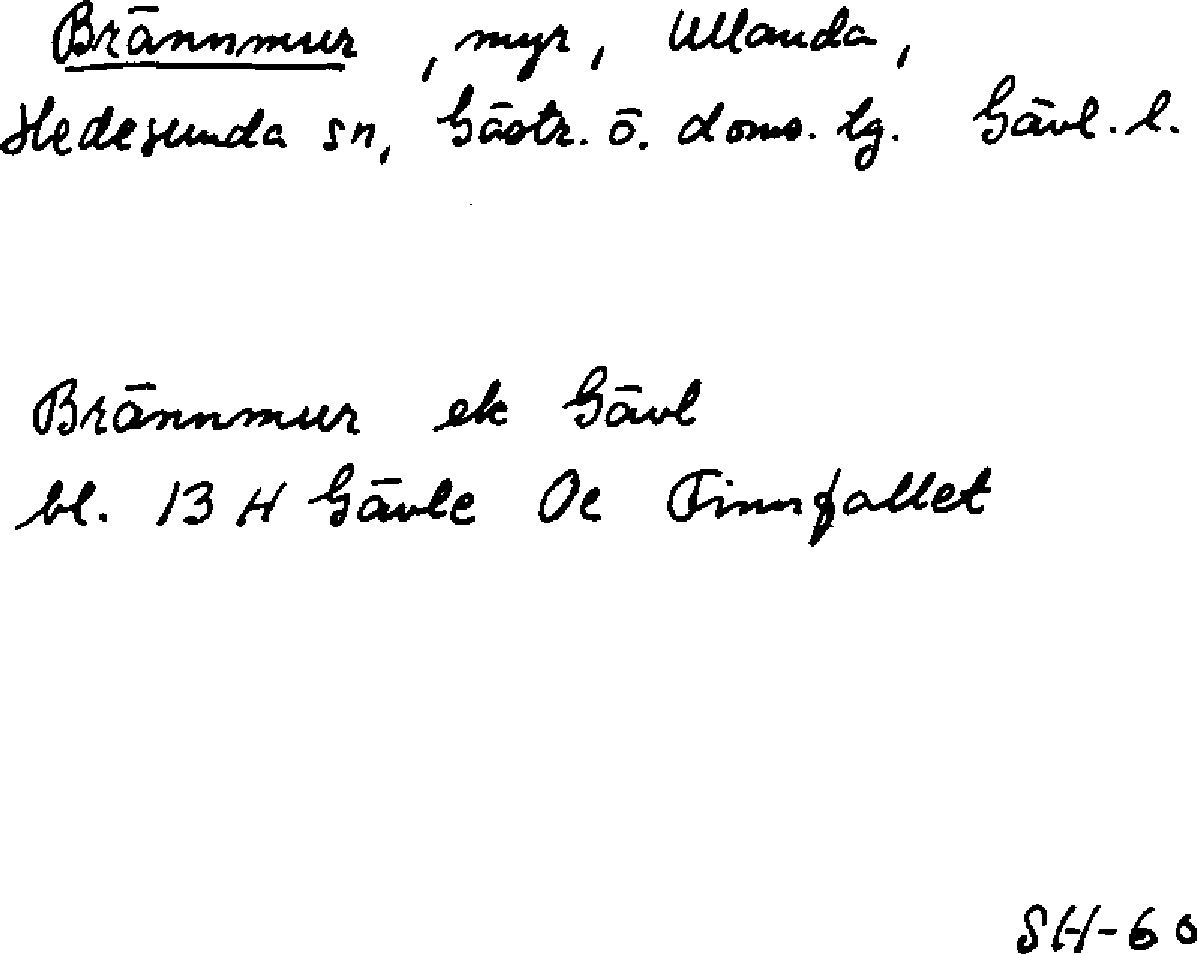 Brännmur, myr, Ullanda,
Hedesunda sn, Gästr. ö. doms. lg. Gävl. l.
Brännmur ek Gävl
bl. 13 H Gävle 0e Finnfallet
SH-60